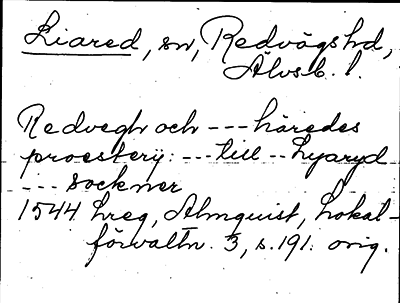 Liared, sn, Redvägshd,
Älvsb. l.
Redvegh och --- häredes
proesterij: --- till -- Lyaryd
--- sockner
1544 hreg, Almquist, Lokal-
förvaltn. 3, s. 191. orig.